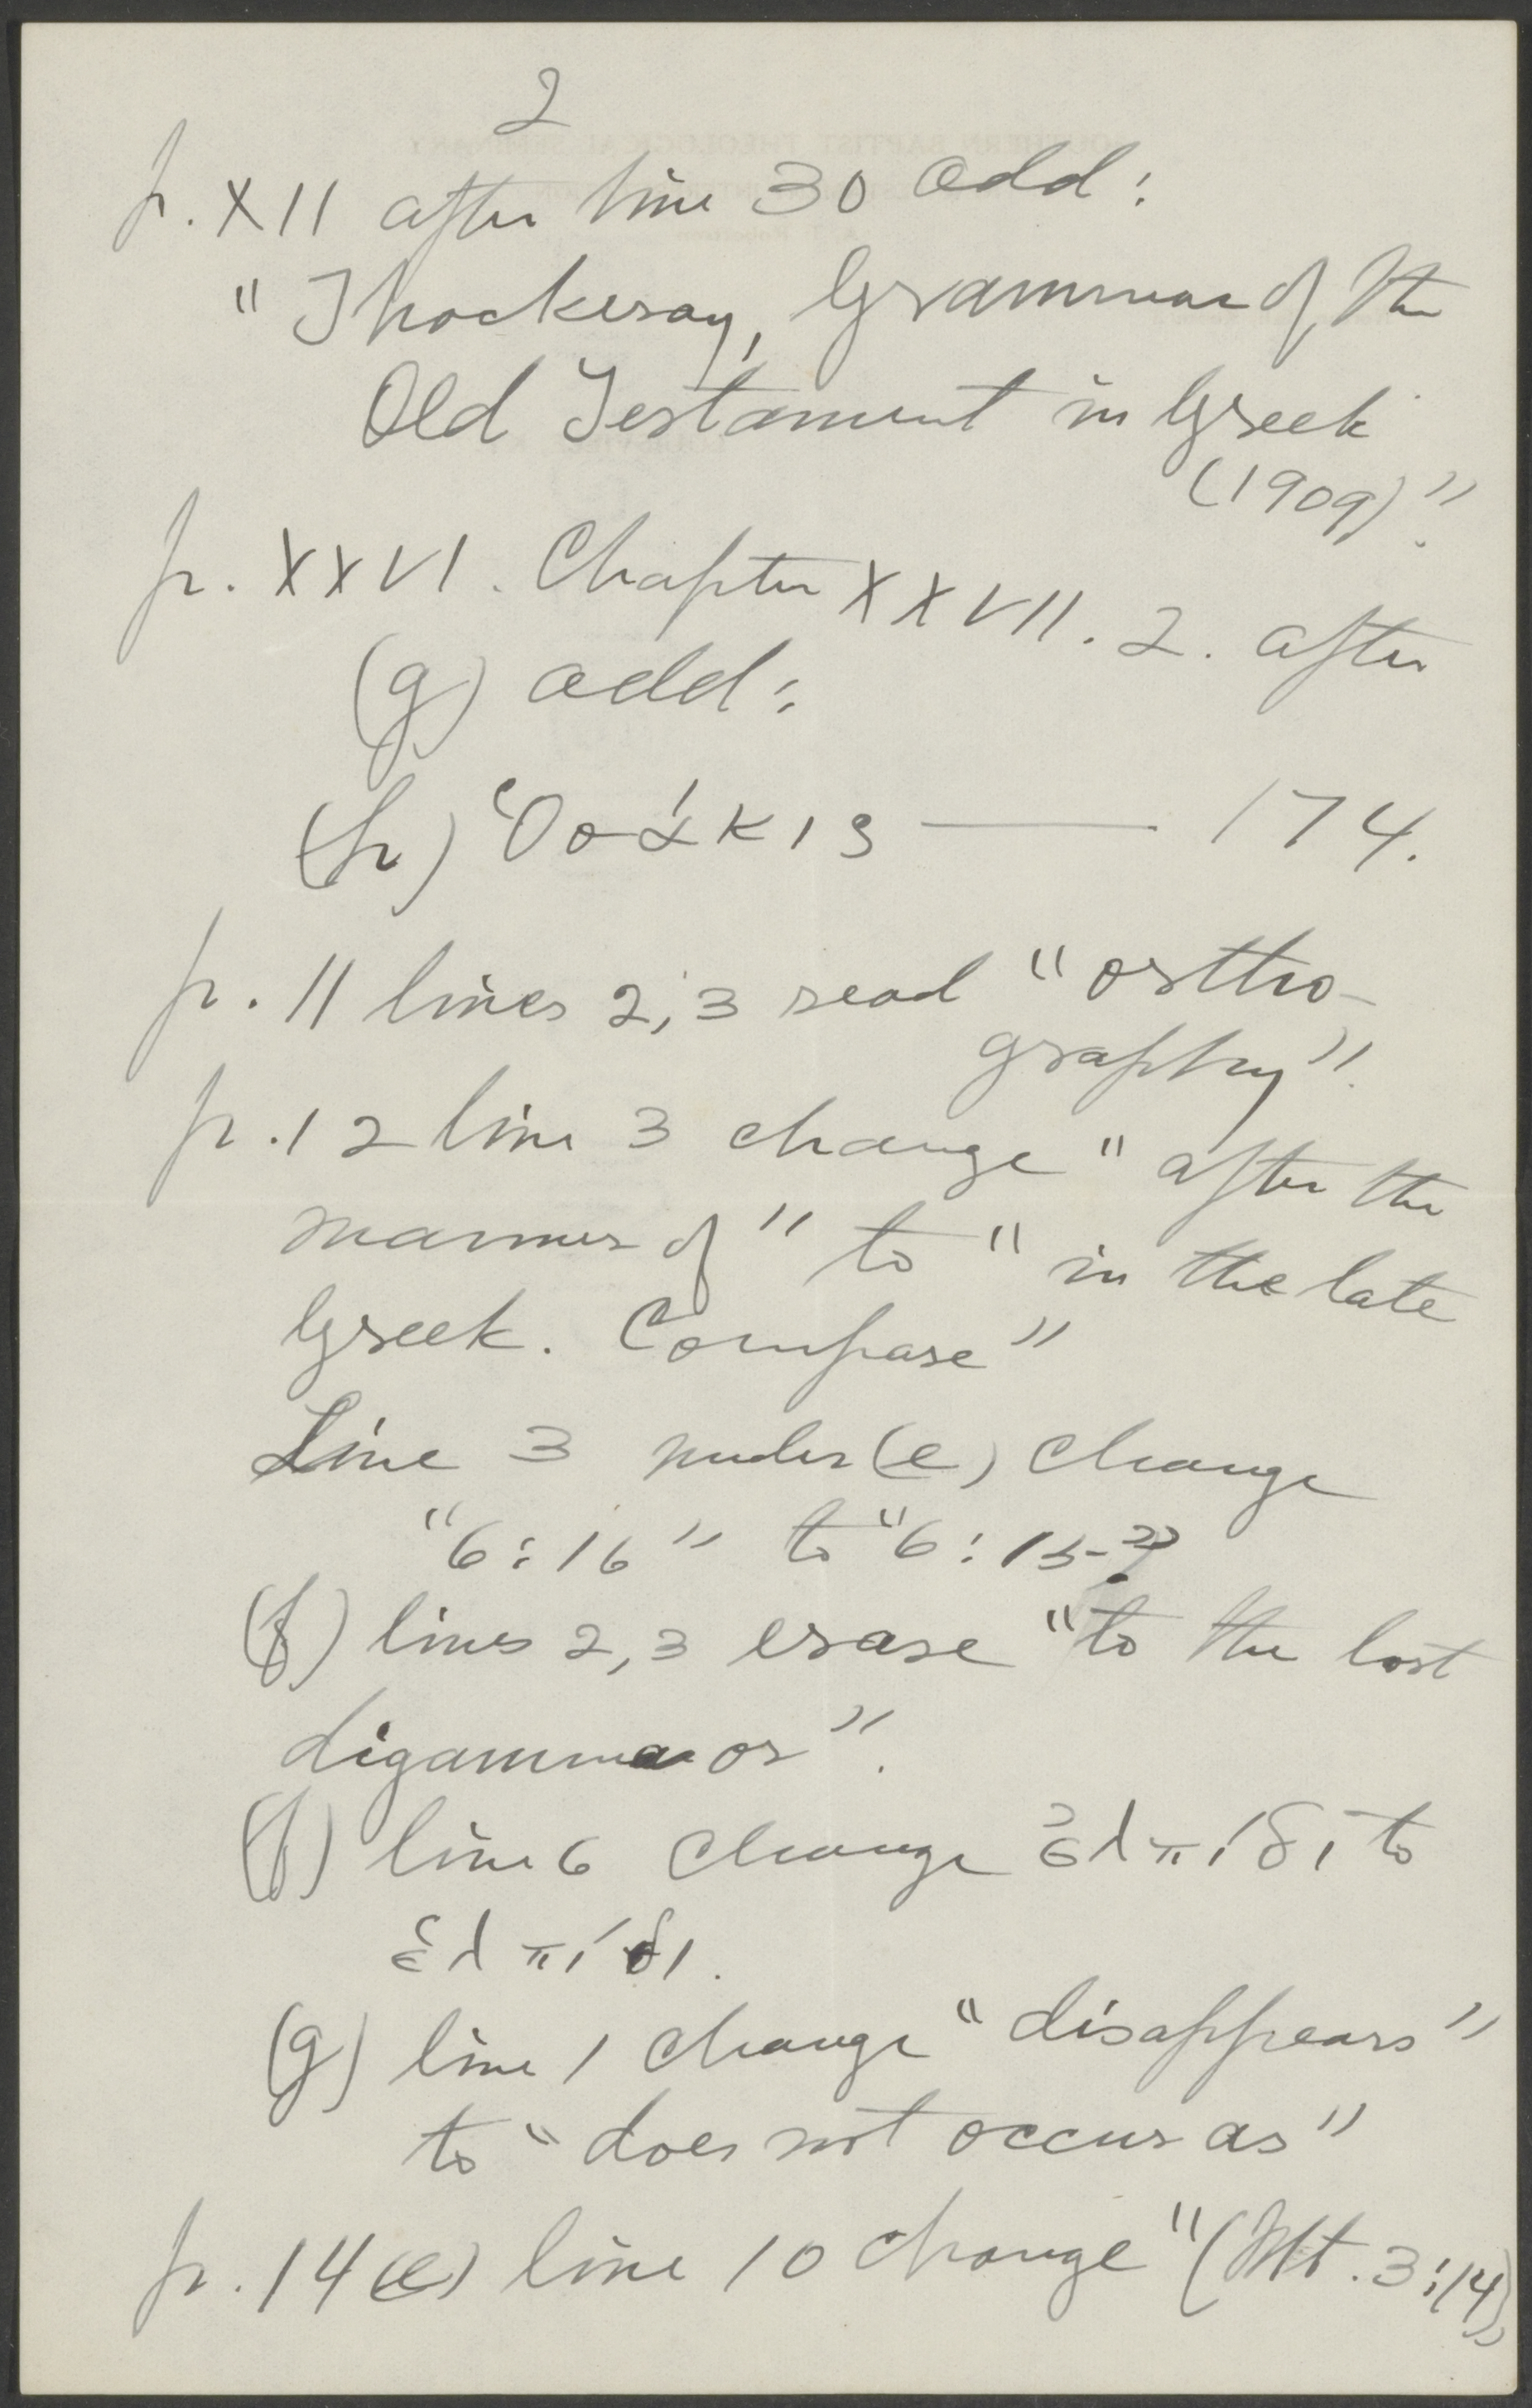 2
p. XII after line 30 add:
"Thackeray, Grammar of the
Old Testament in Greek
(1909)".
p. XXVI. Chapter XXVII. 2. after
(g) add:
(h) Ὁσάκις — 174.
p. 11 lines 2, 3 read "ortho-
graphy".
p. 12 line 3 change "after the
manner of" to "in the late
Greek. Compare"
Line 3 under (e) change
"6:16" to "6:15".
(f) lines 2, 3 erase "to the lost
digamma or".
(f) line 6 change ἐλπίδι to
ἑλπίδι.
(g) line 1 change "disappears"
to "does not occur as"
p. 14 (e) line 10 change "(Mt. 3:14)"